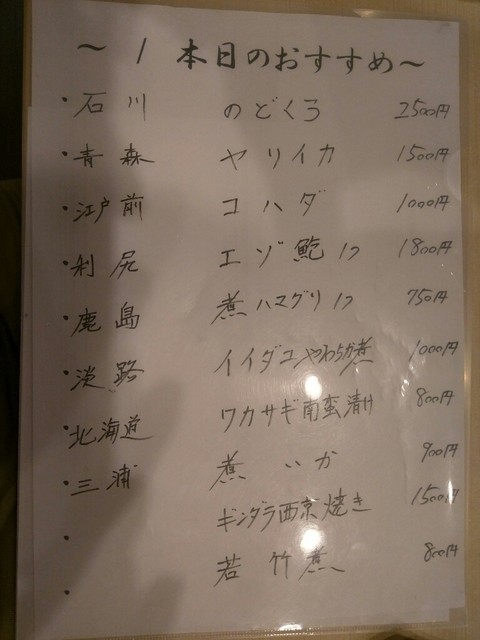 ～ 1 本日のおすすめ～
・石川 のどくろ 2500円
・青森 ヤリイカ 1500円
・江戸前 コハダ 1000円
・利尻 エゾ鮑1つ 1800円
・鹿島 煮ハマグリ1つ 750円
・淡路 イイダコやわらか煮 1000円
・北海道 ワカサギ南蛮漬け 800円
・三浦 煮いか 900円
・ ギンダラ西京焼き 1500円
・ 若竹煮 800円